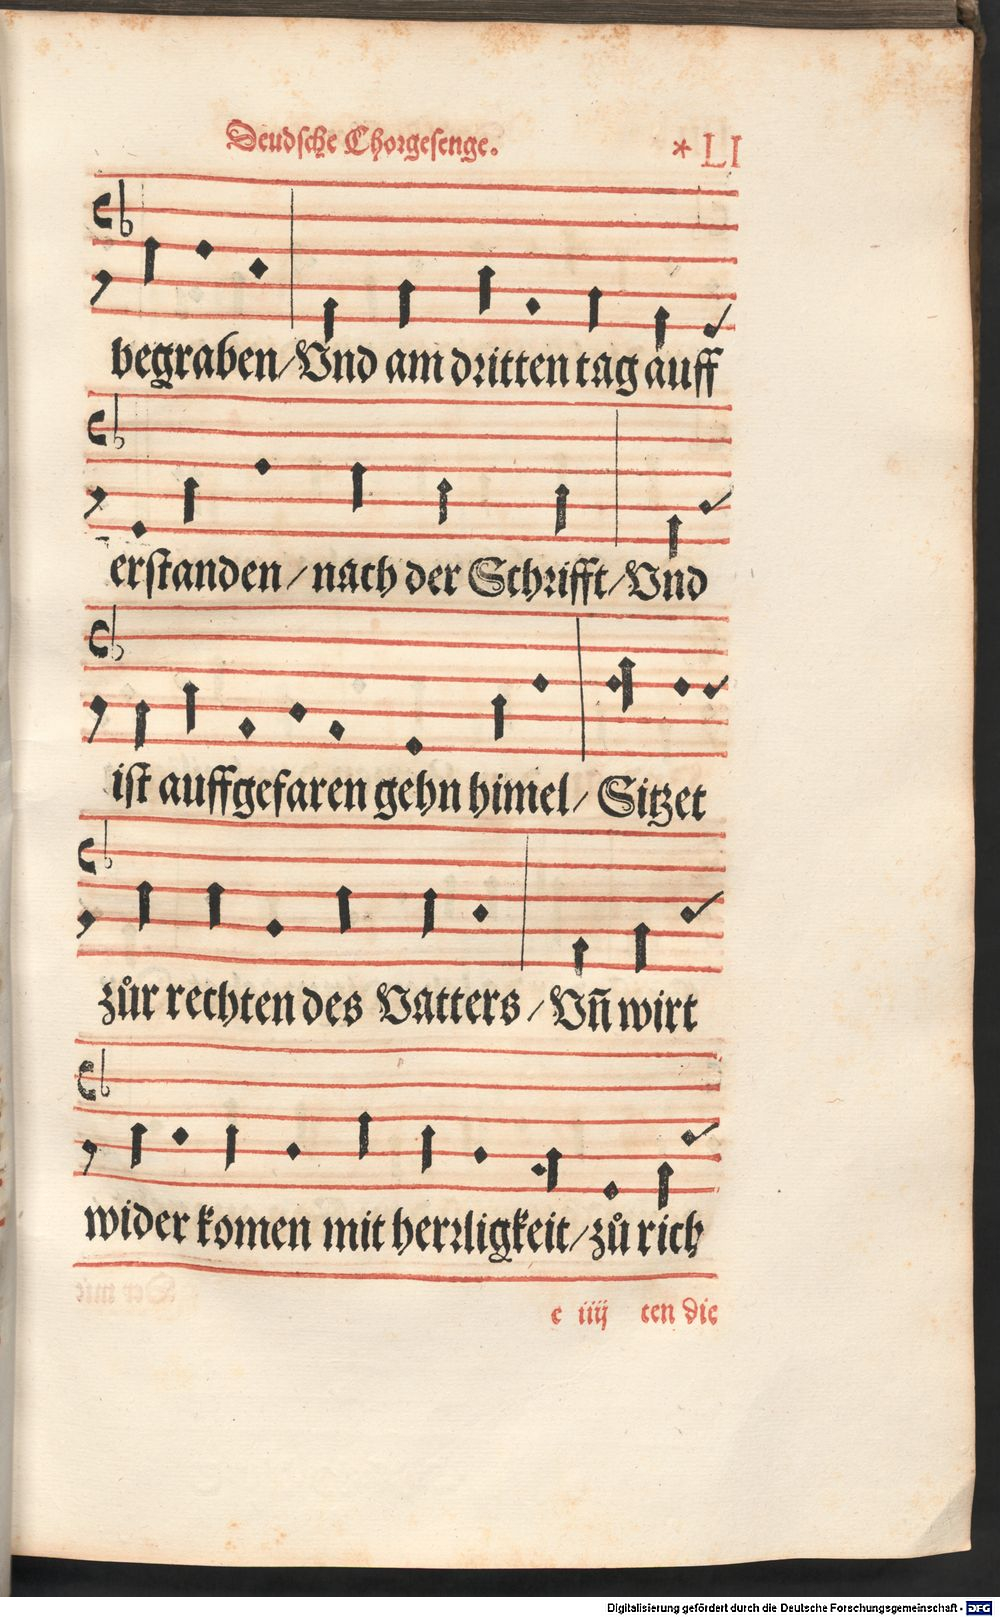 Deudsche Chorgesenge. * LI
begraben/ Vnd am dritten tag auff
erstanden/ nach der Schrifft/ Vnd
ist auffgefaren gehn himel/ Sitzet
zůr rechten des Vatters/ Vñ wirt
wider komen mit herrligkeit/ zů rich
e iiij ten die
Digitalisierung gefördert durch die Deutsche Forschungsgemeinschaft - DFG